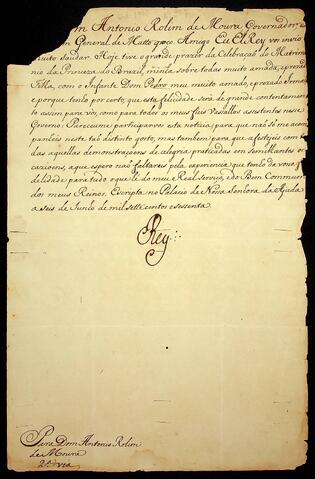 Dom Antonio Rolim de Moura Governador, e
General de Matto groço Amigo. Eu ElRey vos invio
muito Saudar. Hoje tive o grande prazer da Celebração do Matrimo-
nio da Princeza do Brazil, minha sobre todas muito amada, e prezada
Filha, com o Infante Dom Pedro meu muito amado, e prezado Irmaõ:
e porque tenho por certo, que esta felicidade será de grande contentamen-
to assim para vós, como para todos os meus fieis Vassallos assistentes nesse
Governo: Pareceume participarvos esta noticia; para que naõ só me acom-
panheis neste taõ distincto gosto, mas tambem para que a festejeis com to-
das aquellas demonstraçoens de alegria praticadas em semilhantes oc-
cazioens, a que espero naõ faltareis pela experiencia que tenho da vossa fi-
delidade para tudo o que hé do meu Real Serviço, e do Bem Commum
dos meus Reinos. Escripta no Palacio de Nossa Senhora da Ajuda
a seis de Junho de mil sette centos e sessenta.
Rey
Para Dom Antonio Rolim
de Moura
2ª via